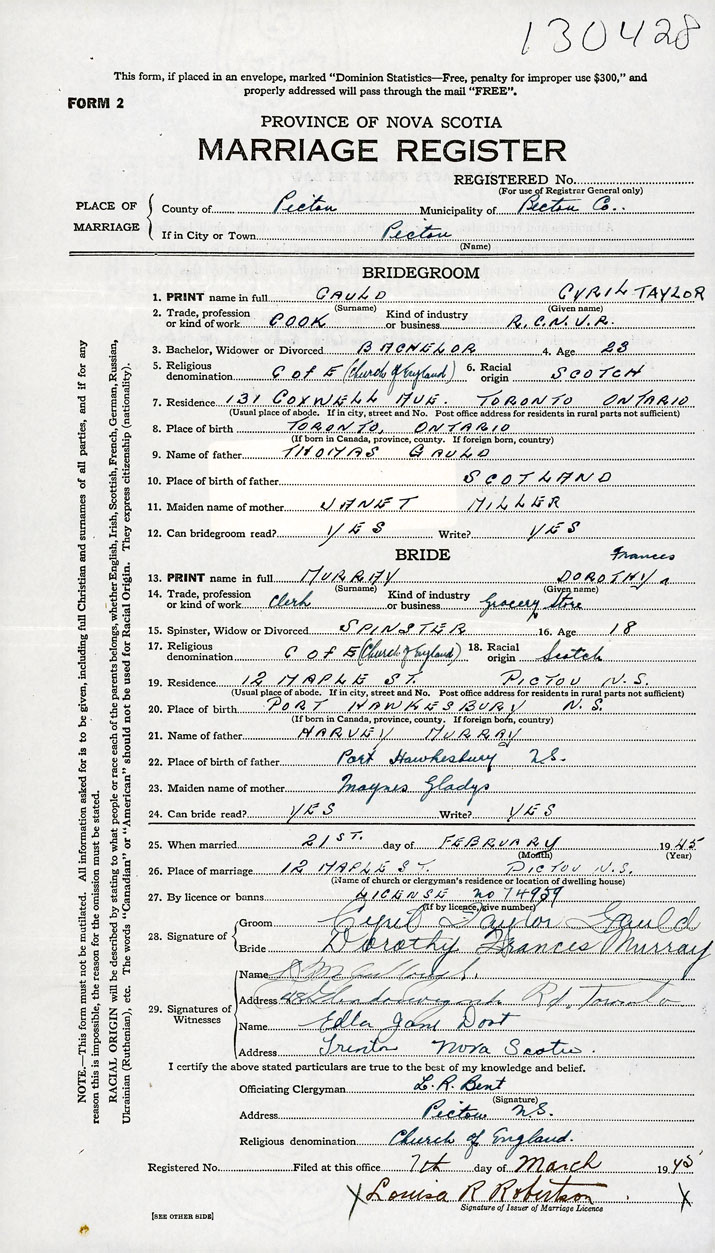 130428
This form, if placed in an envelope, marked "Dominion Statistics—Free, penalty for improper use $300," and
properly addressed will pass through the mail "FREE".
FORM 2
PROVINCE OF NOVA SCOTIA
MARRIAGE REGISTER
REGISTERED No.
(For use of Registrar General only)
PLACE OF MARRIAGE
County of Pictou Municipality of Pictou Co.
If in City or Town Pictou
(Name)
BRIDEGROOM
1. PRINT name in full GAULD CYRIL TAYLOR
(Surname) (Given name)
2. Trade, profession or kind of work COOK Kind of industry or business R.C.N.V.R.
3. Bachelor, Widower or Divorced BACHELOR 4. Age 23
5. Religious denomination C of E (Church of England) 6. Racial origin SCOTCH
7. Residence 131 COXWELL AVE. TORONTO ONTARIO
(Usual place of abode. If in city, street and No. Post office address for residents in rural parts not sufficient)
8. Place of birth TORONTO, ONTARIO
(If born in Canada, province, county. If foreign born, country)
9. Name of father THOMAS GAULD
10. Place of birth of father SCOTLAND
11. Maiden name of mother JANET MILLER
12. Can bridegroom read? YES Write? YES
BRIDE
Frances
13. PRINT name in full MURRAY DOROTHY
(Surname) (Given name)
14. Trade, profession or kind of work Clerk Kind of industry or business Grocery Store
15. Spinster, Widow or Divorced SPINSTER 16. Age 18
17. Religious denomination C of E (Church of England) 18. Racial origin Scotch
19. Residence 12 MAPLE ST. PICTOU N.S.
(Usual place of abode. If in city, street and No. Post office address for residents in rural parts not sufficient)
20. Place of birth PORT HAWKESBURY N.S.
(If born in Canada, province, county. If foreign born, country)
21. Name of father HARVEY MURRAY
22. Place of birth of father Port Hawkesbury N.S.
23. Maiden name of mother Maynes Gladys
24. Can bride read? YES Write? YES
25. When married 21ST. day of FEBRUARY 1945
(Month) (Year)
26. Place of marriage 12 MAPLE ST. PICTOU N.S.
(Name of church or clergyman's residence or location of dwelling house)
27. By licence or banns LICENSE no 74959
(If by licence, give number)
28. Signature of
Groom Cyril Taylor Gauld
Bride Dorothy Frances Murray
29. Signatures of Witnesses
Name
Address Rd, Toronto
Name Edla Jane Dort
Address Trenton Nova Scotia.
I certify the above stated particulars are true to the best of my knowledge and belief.
Officiating Clergyman L. R. Bent
(Signature)
Address Pictou N.S.
Religious denomination Church of England.
Registered No. Filed at this office 7th day of March 1945
X Louisa R Robertson X
Signature of Issuer of Marriage Licence
[SEE OTHER SIDE]
NOTE.—This form must not be mutilated. All information asked for is to be given, including full Christian and surnames of all parties, and if for any
reason this is impossible, the reason for the omission must be stated.
RACIAL ORIGIN will be described by stating to what people or race each of the parents belongs, whether English, Irish, Scottish, French, German, Russian,
Ukrainian (Ruthenian), etc. The words "Canadian" or "American" should not be used for Racial Origin. They express citizenship (nationality).